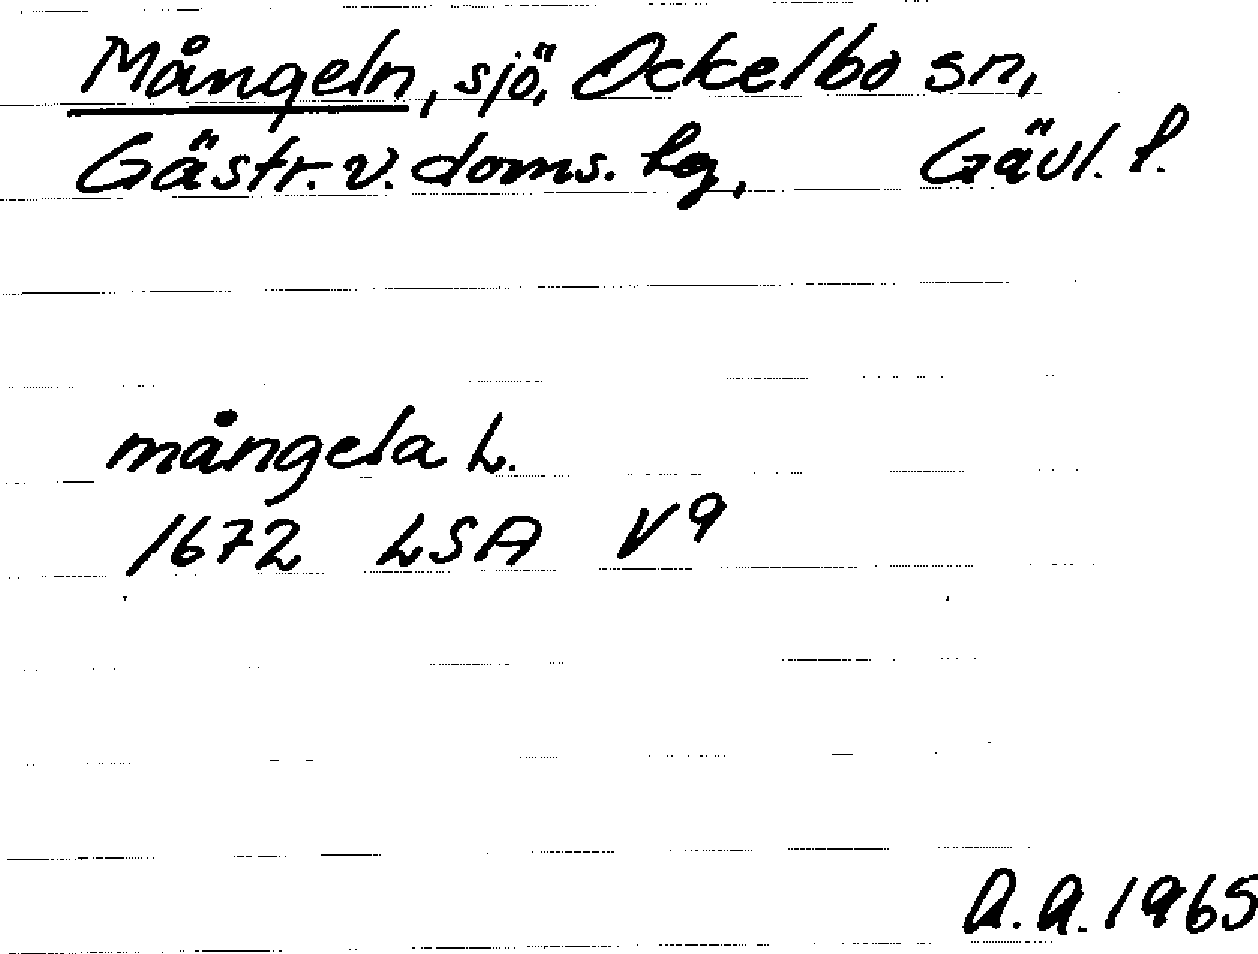 Mångeln, sjö, Ockelbo sn,
Gästr. v. doms. hg, Gävl. l.
mångela L.
1672 LSA V9
A.A. 1965